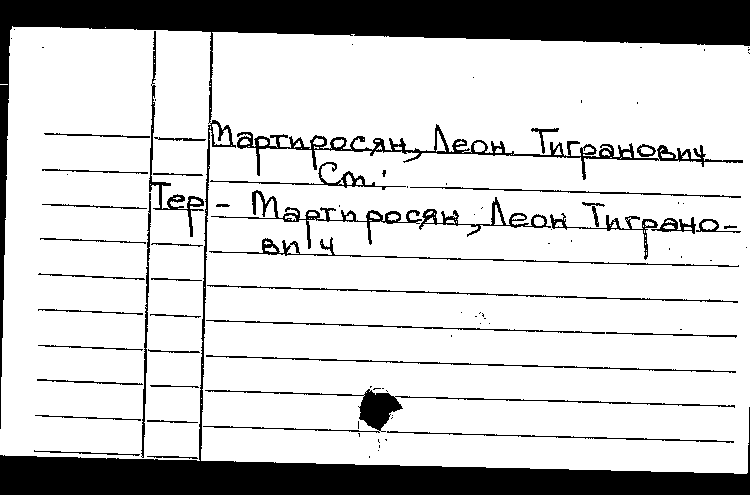 Мартиросян, Леон Тигранович
Ст.:
Тер - Мартиросян, Леон Тиграно-
вич